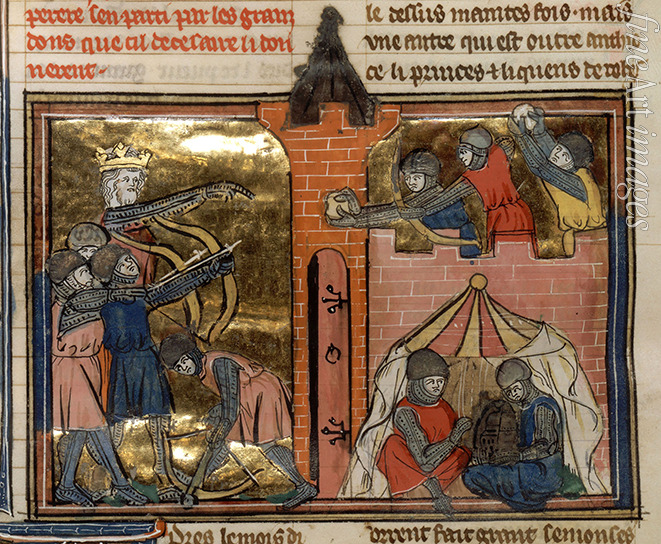 perere sen parti par les
dons que cil de cesaire li don
nerent·
le dessus maintes fois · mais
vne autre qui est outre anthi
ce li princes ⁊ li quens de rohe
le mois di
orrent fait grant semonses
fineArtimages